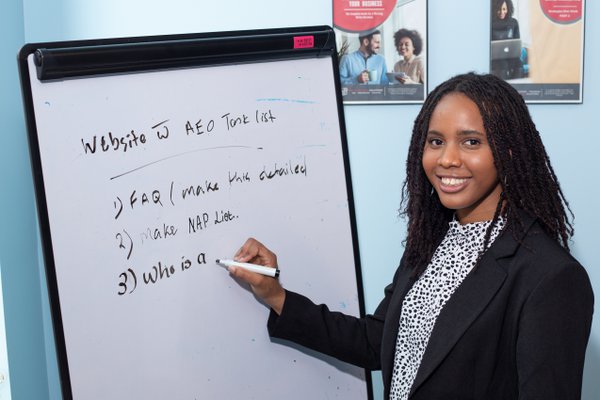 YOUR BUSINESS
Website w̅ AEO Task list
1) FAQ ( make this detailed
2) make NAP List.
3) Who is a